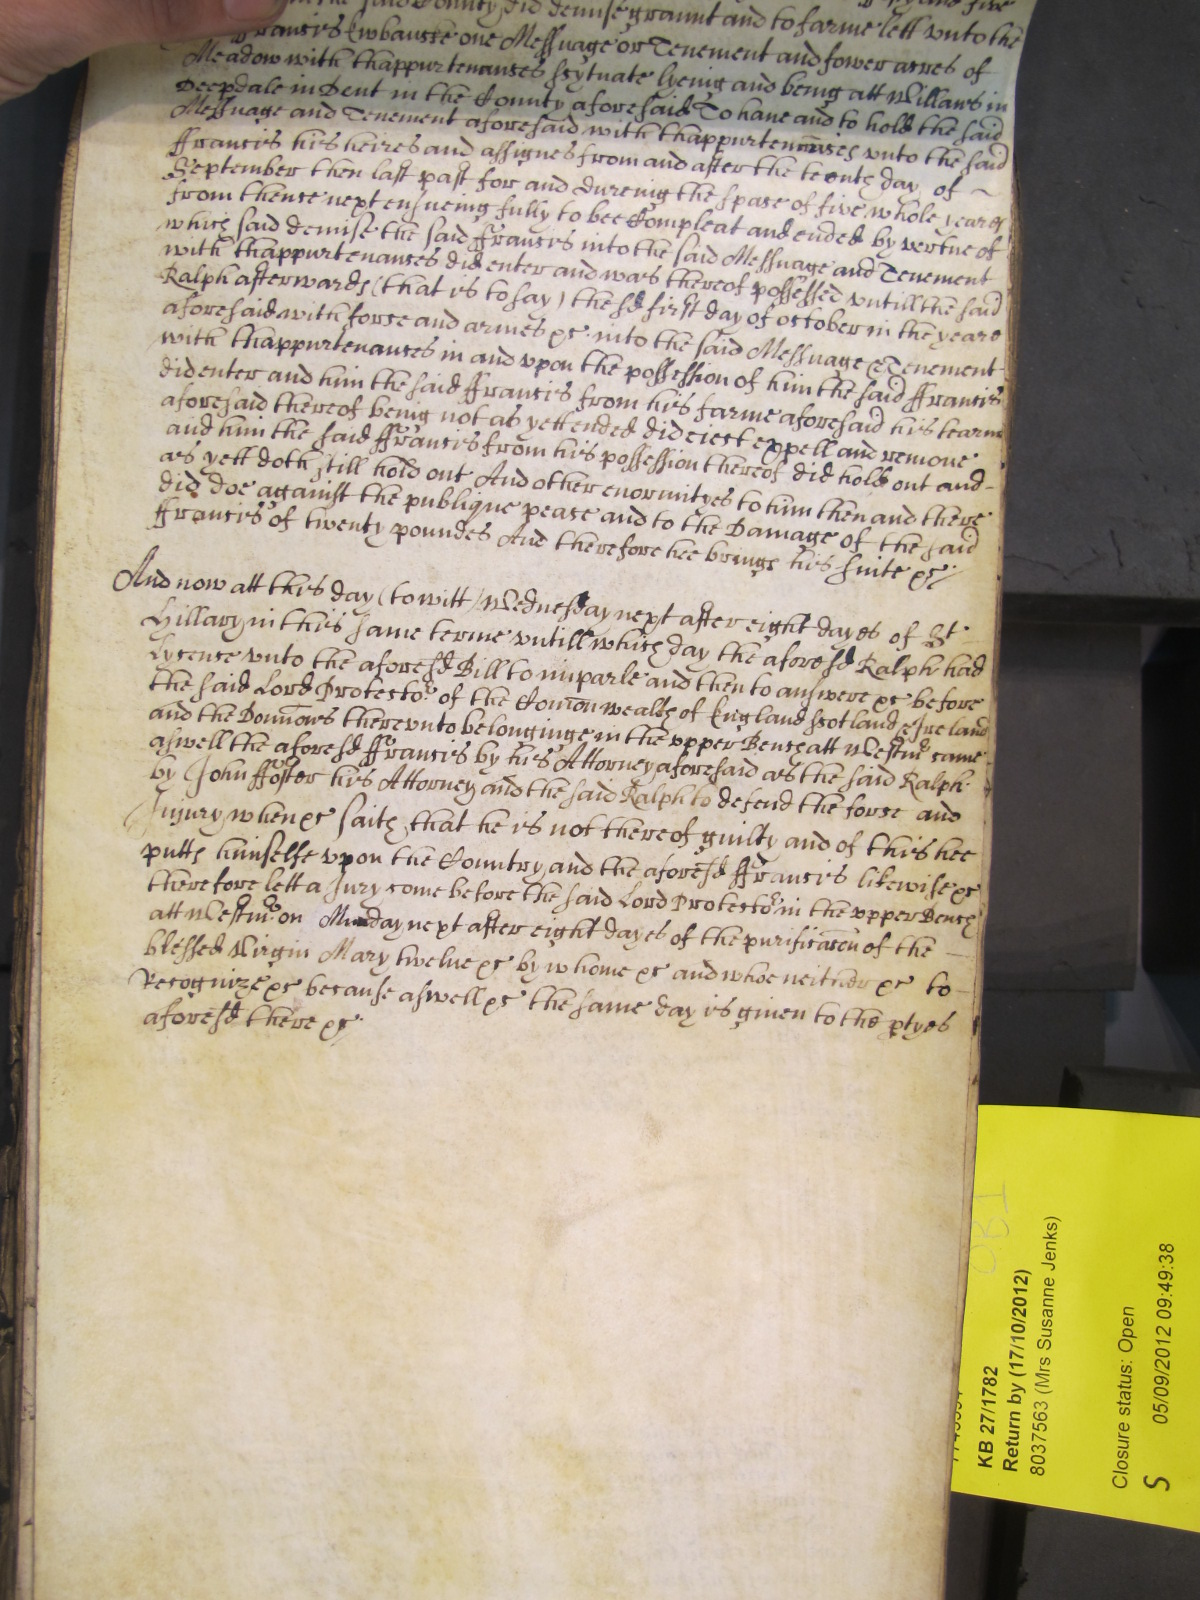 in the said County did demise graunt and to farme lett vnto the
Francis one Messuage or Tenement and fower acres of
Meadow with thappurtenances scytuate lyeing and being att Willans in
Deepdale in Dent in the County aforesaid To haue and to hold the said
Messuage and Tenement aforesaid with thappurtennces vnto the said
ffrancis his heires and assignes from and after the tenth day of
September then last past for and dureing the space of five whole yeares
from thence next ensueing fully to bee Compleat and ended by vertue of
which said demise the said ffrancis into the said Messuage and Tenement
with thappurtenances did enter and was thereof possessed vntill the said
Ralph afterwards (that is to say) the sd first day of october in the yeare
aforesaid with force and armes &c into the said Messuage & Tenement
with thappurtenances in and vpon the possession of him the said ffrancis
did enter and him the said ffrancis from his farme aforesaid his tearme
aforesaid thereof being not as yett ended did eiect expell and remoue
and him the said ffrancis from his possession thereof did hold out and
as yett doth still hold out And other enormityes to him then and there
did doe against the publique peace and to the Damage of the said
ffrancis of twenty poundes And therefore hee brings his suite &c/
And now att this day (to witt) Wednesday next after eight dayes of St
Hillary in this same terme vntill which day the aforesd Ralph had
Lycence vnto the aforesd Bill to imparle and then to answere &c before
the said Lord Protector of the Comon wealth of England Scotland & Ireland
and the Dominions therevnto belonginge in the vpper Bench att Westmr came
aswell the aforesd ffrancis by his Attorney aforesaid as the said Ralph
by John ffoster his Attorney and the said Ralph to defend the force and
Injury when &c saith that he is not thereof guilty and of this hee
putts himselfe vpon the Country and the aforesd ffrancis likewise &c
therefore lett a Jury come before the said Lord Protector in the vpper Bench
att Westmr on Munday next after eight dayes of the purificacon of the
blessed Virgin Mary twelue &c by whome &c and whoe neither &c to
Recognize &c because aswell &c the same day is giuen to the ptyes
aforesd there &c
KB 27/1782
Return by (17/10/2012)
8037563 (Mrs Susanne Jenks)
Closure status: Open
S 05/09/2012 09:49:38